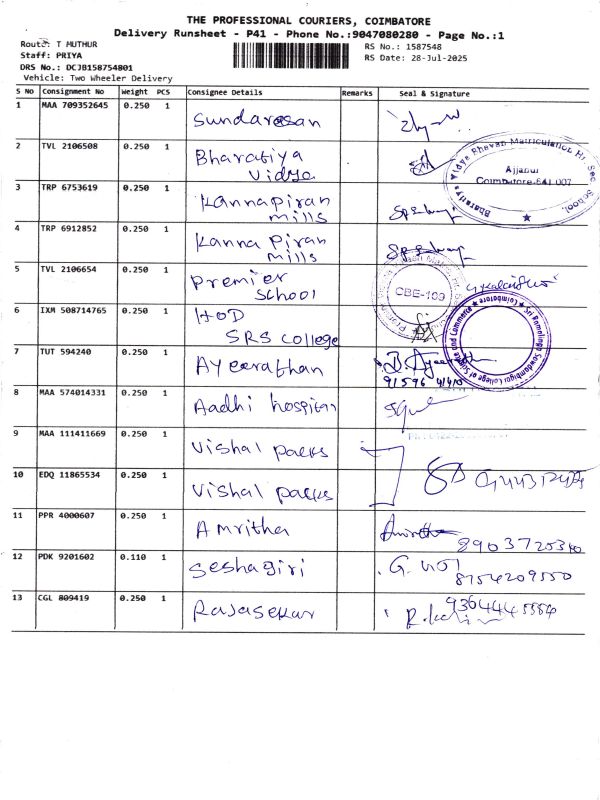 THE PROFESSIONAL COURIERS, COIMBATORE
Delivery Runsheet - P41 - Phone No.:9047080280 - Page No.:1
Route: T MUTHUR
Staff: PRIYA
DRS No.: DCJB158754801
Vehicle: Two Wheeler Delivery
RS No.: 1587548
RS Date: 28-Jul-2025
S No Consignment No Weight PCS Consignee Details Remarks Seal & Signature
1 MAA 709352645 0.250 1 Sundaresan
2 TVL 2106508 0.250 1 Bharatiya
Vidya
Bharatiya Vidya Bhavan Matriculation Hr. Sec. School
Ajjanur
Coimbatore-641 007
3 TRP 6753619 0.250 1 Kannapiran
mills
4 TRP 6912852 0.250 1 Kanna Piran
mills
5 TVL 2106654 0.250 1 Premier
School
CBE-109
6 IXM 508714765 0.250 1 HOD
SRS College
Sri Ramalinga Sowdambigai College of Science and Commerce Coimbatore
7 TUT 594240 0.250 1 Ayeerathan
8 MAA 574014331 0.250 1 Aadhi hospital
9 MAA 111411669 0.250 1 Vishal packs
10 EDQ 11865534 0.250 1 Vishal packs
11 PPR 4000607 0.250 1 Amritha
12 PDK 9201602 0.110 1 Seshagiri G.
8754209550
13 CGL 809419 0.250 1 Rajasekar